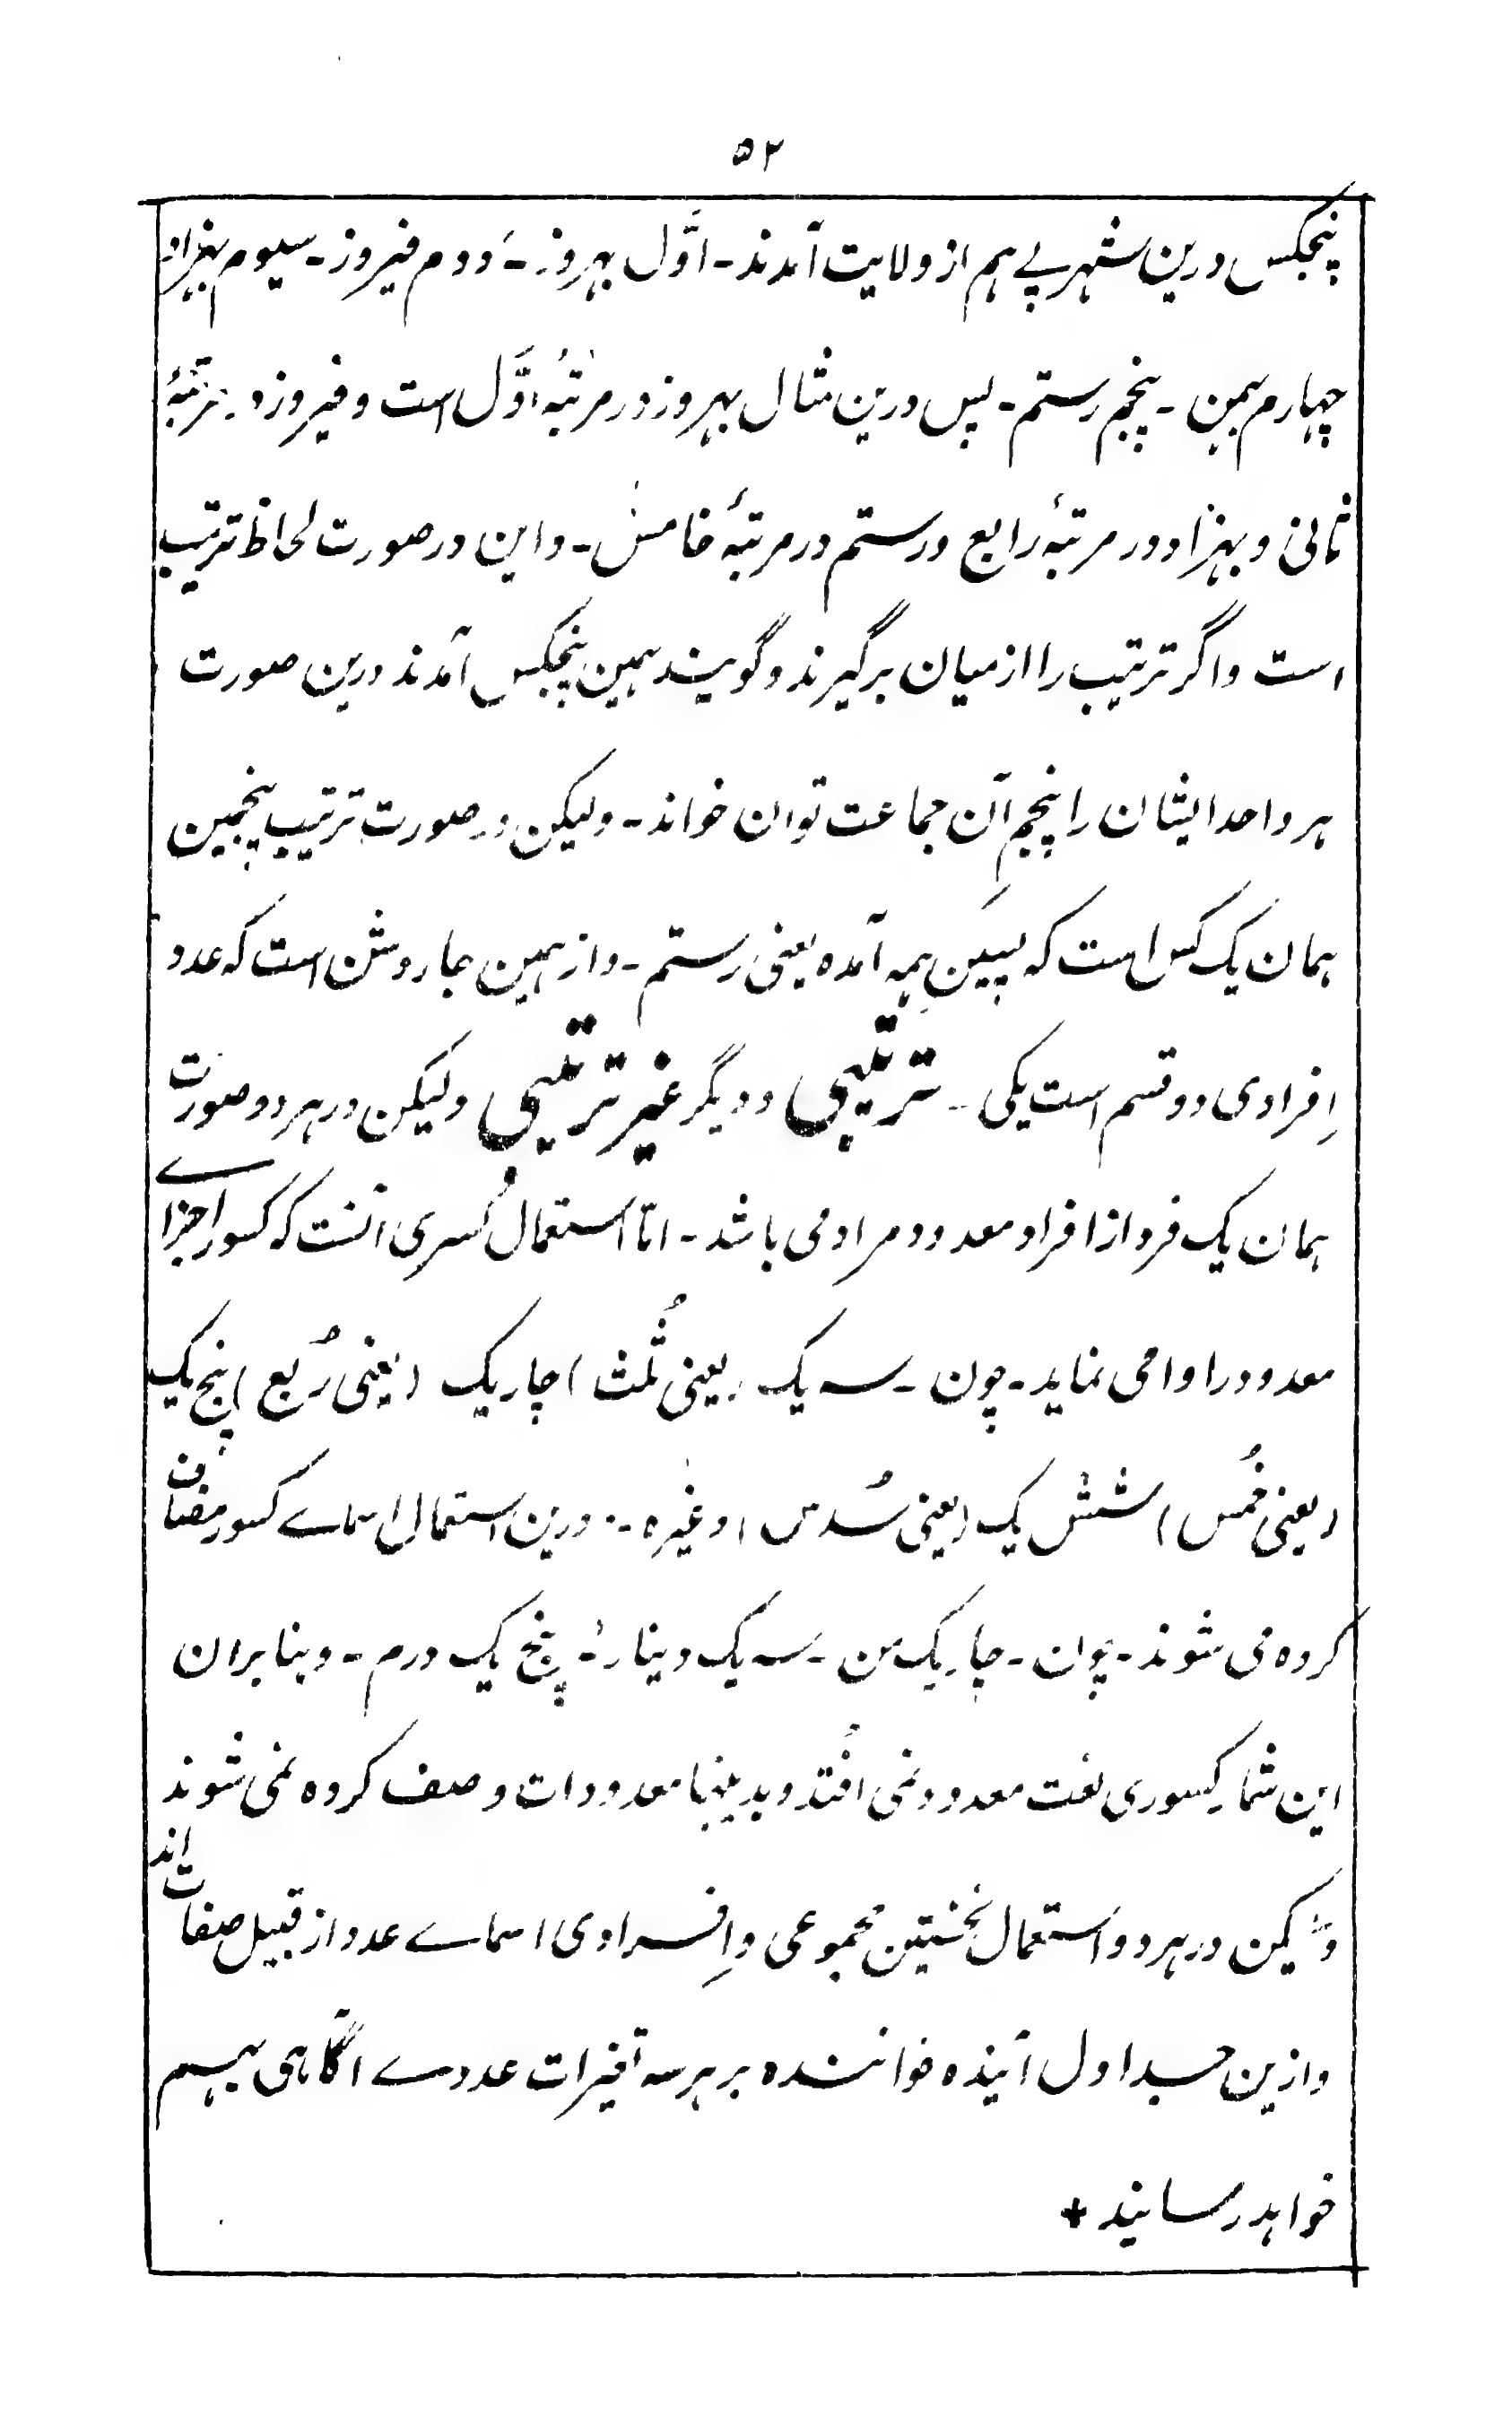 ۵۲
پنجکس درین شهر پے هم از ولایت آمدند - اوّل بهروز - دوم فیروز - سیوم بهزاد
چهارم بهمن - پنجم رستم - پس درین مثال بهروز در مرتبهٔ اوّل است و فیروز در مرتبهٔ
ثانی و بهزاد در مرتبهٔ رابع و رستم در مرتبهٔ خامس - و این در صورت لحاظ ترتیب
است و اگر ترتیب را از میان برگیرند و گویند همین پنجکس آمدند درین صورت
هر واحد ایشان را پنجمِ آن جماعت توان خواند - ولیکن در صورت ترتیب پنجمین
همان یک کس است که پسینِ همه آمده یعنی رستم - و از همین جا روشن است که عدد
اِفرادی دو قسم است یکی - ترتیبی و دیگر غیر ترتیبی ولیکن در هر دو صورت
همان یک فرد از افراد معدود مراد می باشد - امّا استعمال کسری آنست که کسور اجزاے
معدود را وا می نماید - چون - سه یک (یعنی ثُلث) چار یک (یعنی رُبع) پنج یک
(یعنی خُمس) شش یک (یعنی سُدس) و غیره - درین استعمال اسماے کسور مضاف
کرده می شوند - چون - چار یک من - سه یک دینار - پنج یک درم - و بنا بران
این شمار کسوری نعت معدود نمی افتد و بدینها معدودات وصف کرده نمی شوند
ولیکن در هر دو استعمال نخستین مجموعی و اِفرادی اسماے عدد از قبیل صفات اند
و ازین جداول آینده خواننده بر هر سه تغیرات عددے آگاهی بهم
خواهد رسانید +